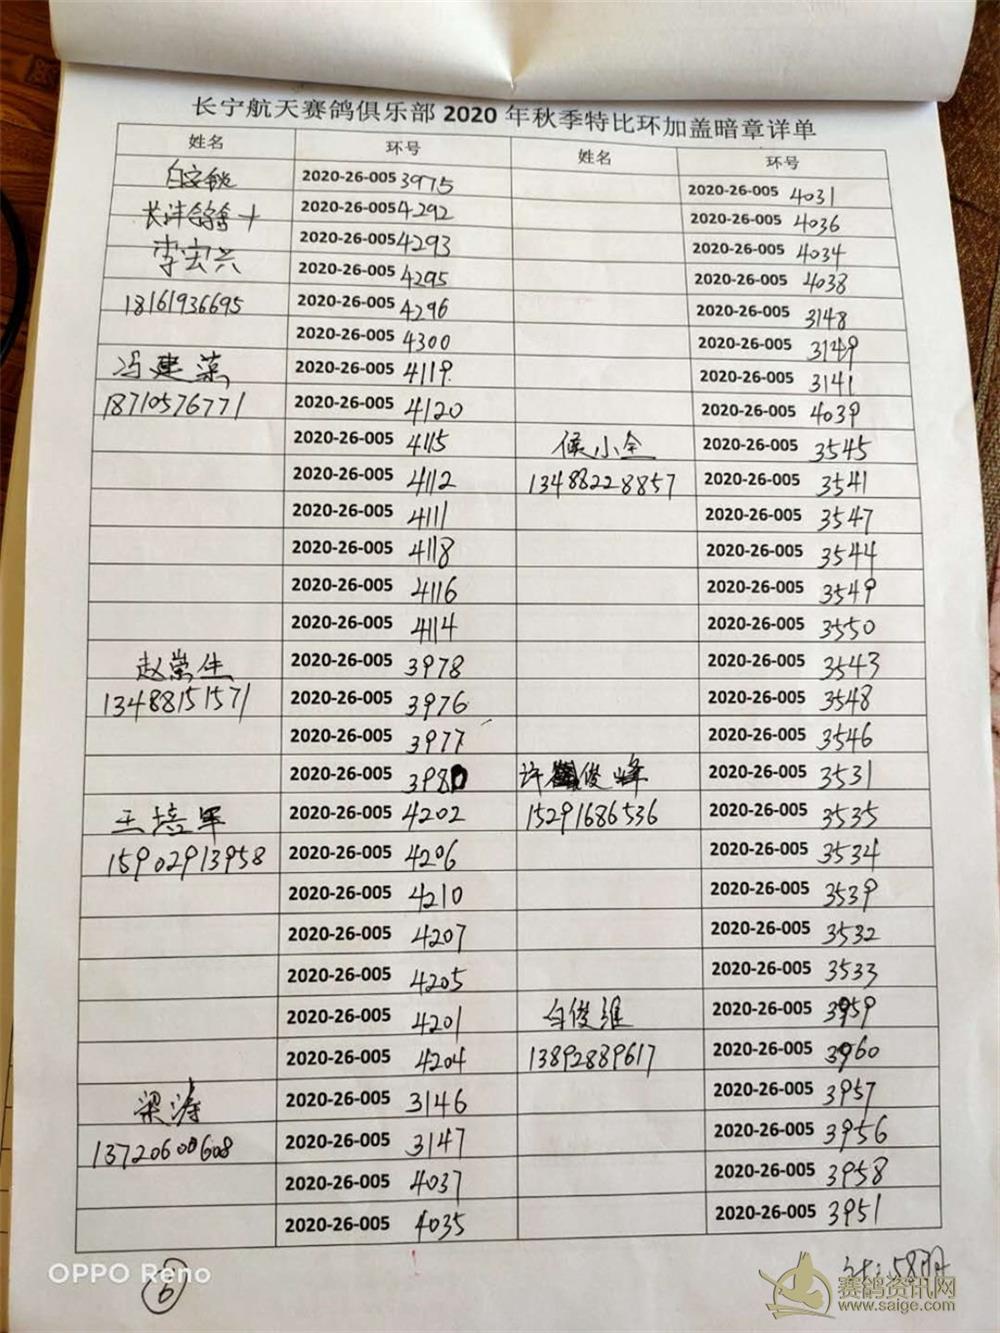 长宁航天赛鸽俱乐部 2020 年秋季特比环加盖暗章详单
姓名 环号 姓名 环号
白文铳 2020-26-005 3975 2020-26-005 4031
长沣鸽舍十 2020-26-005 4292 2020-26-005 4036
李宏兴 2020-26-005 4293 2020-26-005 4034
2020-26-005 4295 2020-26-005 4038
18161936695 2020-26-005 4296 2020-26-005 3148
2020-26-005 4300 2020-26-005 3149
冯建荣 2020-26-005 4119 2020-26-005 3141
18710576771 2020-26-005 4120 2020-26-005 4039
2020-26-005 4115 侯小全 2020-26-005 3545
2020-26-005 4112 13488228857 2020-26-005 3541
2020-26-005 4111 2020-26-005 3547
2020-26-005 4118 2020-26-005 3544
2020-26-005 4116 2020-26-005 3549
2020-26-005 4114 2020-26-005 3550
赵常生 2020-26-005 3978 2020-26-005 3543
13488151571 2020-26-005 3976 2020-26-005 3548
2020-26-005 3977 2020-26-005 3546
2020-26-005 3980 许俊峰 2020-26-005 3531
王培军 2020-26-005 4202 15291686536 2020-26-005 3535
15902913958 2020-26-005 4206 2020-26-005 3534
2020-26-005 4210 2020-26-005 3539
2020-26-005 4207 2020-26-005 3532
2020-26-005 4205 2020-26-005 3533
2020-26-005 4201 白俊维 2020-26-005 3959
2020-26-005 4204 13892889617 2020-26-005 3960
梁涛 2020-26-005 3146 2020-26-005 3957
13720600608 2020-26-005 3147 2020-26-005 3956
2020-26-005 4037 2020-26-005 3958
2020-26-005 4035 2020-26-005 3951
计:58羽
OPPO Reno
6
赛鸽资讯网
www.saige.com